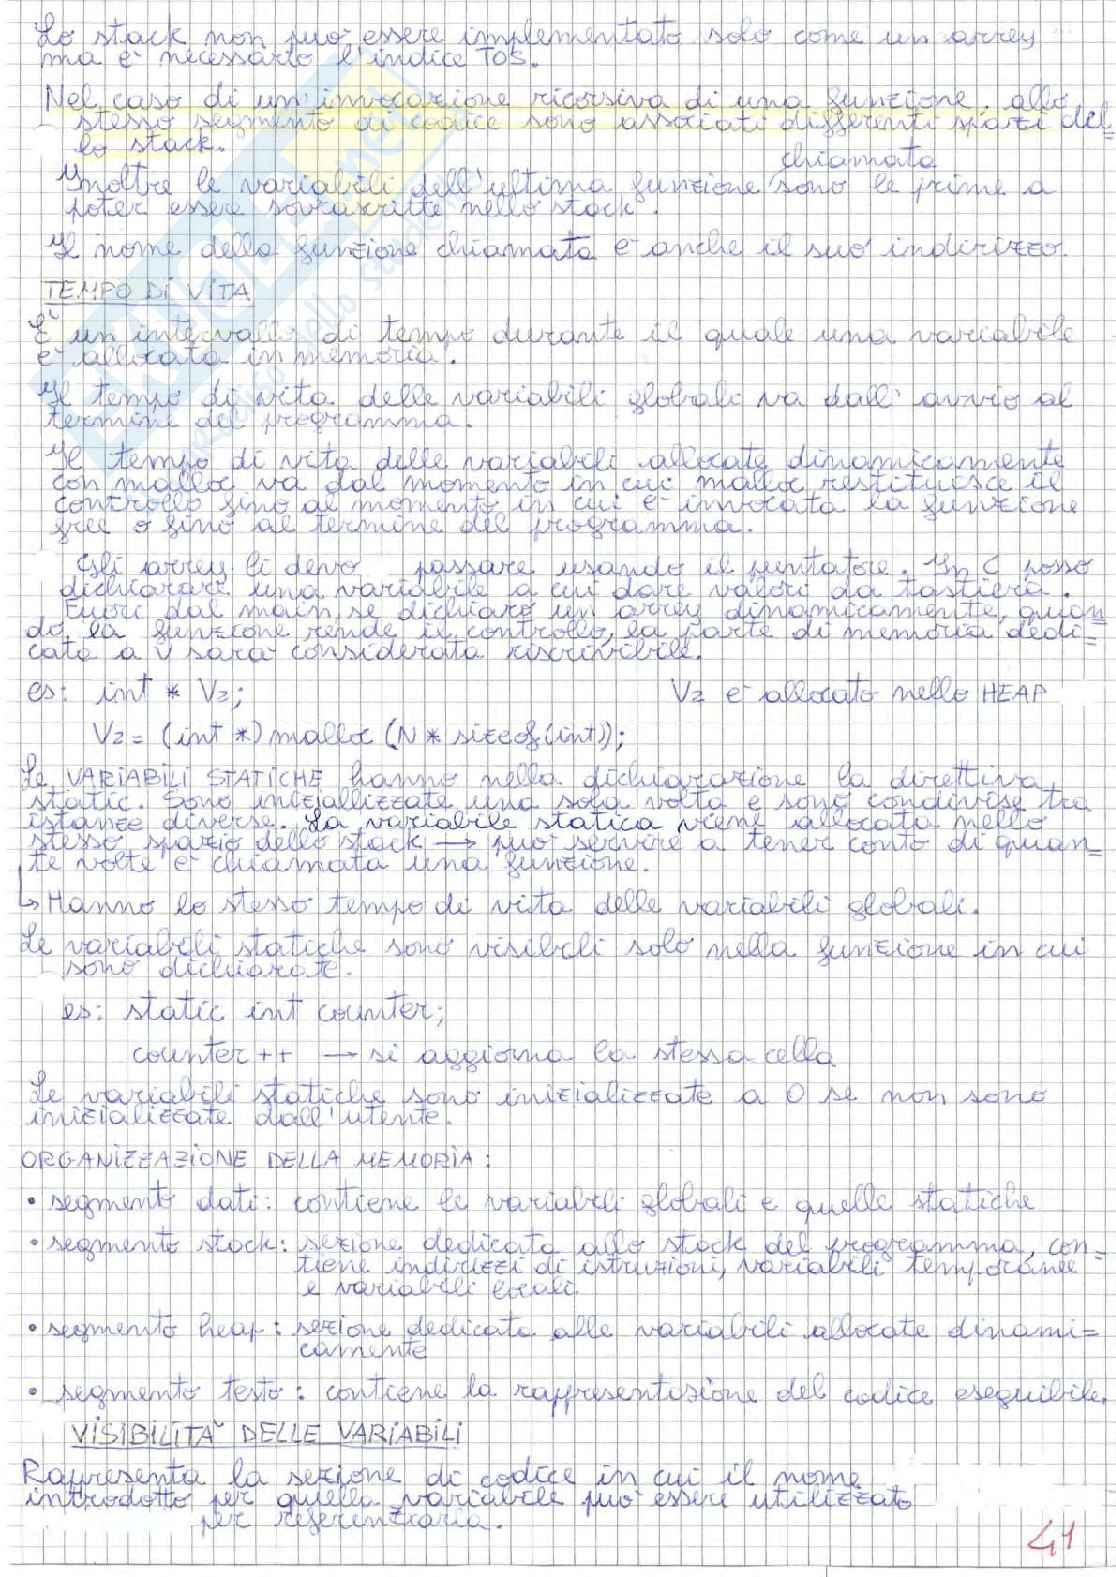 Lo stack non può essere implementato solo come un array
ma è necessario l'indice TOS.
Nel caso di un'invocazione ricorsiva di una funzione, allo
stesso segmento di codice sono associati differenti spazi del=
lo stack.
chiamata
Inoltre le variabili dell'ultima funzione sono le prime a
poter essere sovrascritte nello stack.
Il nome della funzione chiamata è anche il suo indirizzo.
TEMPO DI VITA
È un intervallo di tempo durante il quale una variabile
è allocata in memoria.
Il tempo di vita delle variabili globali va dall'avvio al
termine del programma.
Il tempo di vita delle variabili allocate dinamicamente
con malloc va dal momento in cui malloc restituisce il
controllo fino al momento in cui è invocata la funzione
free o fino al termine del programma.
Gli array li devo passare usando il puntatore. In C posso
dichiarare una variabile a cui dare valori da tastiera.
Fuori dal main, se dichiaro un array dinamicamente, quan=
do la funzione rende il controllo, la parte di memoria dedi=
cata a V sarà considerata riscrivibile.
es: int * V2; V2 è allocato nello HEAP
V2 = (int *) malloc (N * sizeof(int));
Le VARIABILI STATICHE hanno nella dichiarazione la direttiva
static. Sono iniziallizzate una sola volta e sono condivise tra
istanze diverse. La variabile statica viene allocata nello
stesso spazio dello stack → può servire a tener conto di quan=
te volte è chiamata una funzione.
↳ Hanno lo stesso tempo di vita delle variabili globali.
Le variabili statiche sono visibili solo nella funzione in cui
sono dichiarate.
es: static int counter;
counter ++ → si aggiorna la stessa cella
Le variabili statiche sono inizializzate a 0 se non sono
inizializzate dall'utente.
ORGANIZZAZIONE DELLA MEMORIA:
• segmento dati: contiene le variabili globali e quelle statiche
• segmento stack: sezione dedicata allo stack del programma, con=
tiene indirizzi di istruzioni, variabili temporanee
e variabili locali.
• segmento heap: sezione dedicata alle variabili allocate dinami=
camente
• segmento testo: contiene la rappresentazione del codice eseguibile.
VISIBILITA' DELLE VARIABILI
Rappresenta la sezione di codice in cui il nome
introdotto per quella variabile può essere utilizzato
per referenziarla.
41